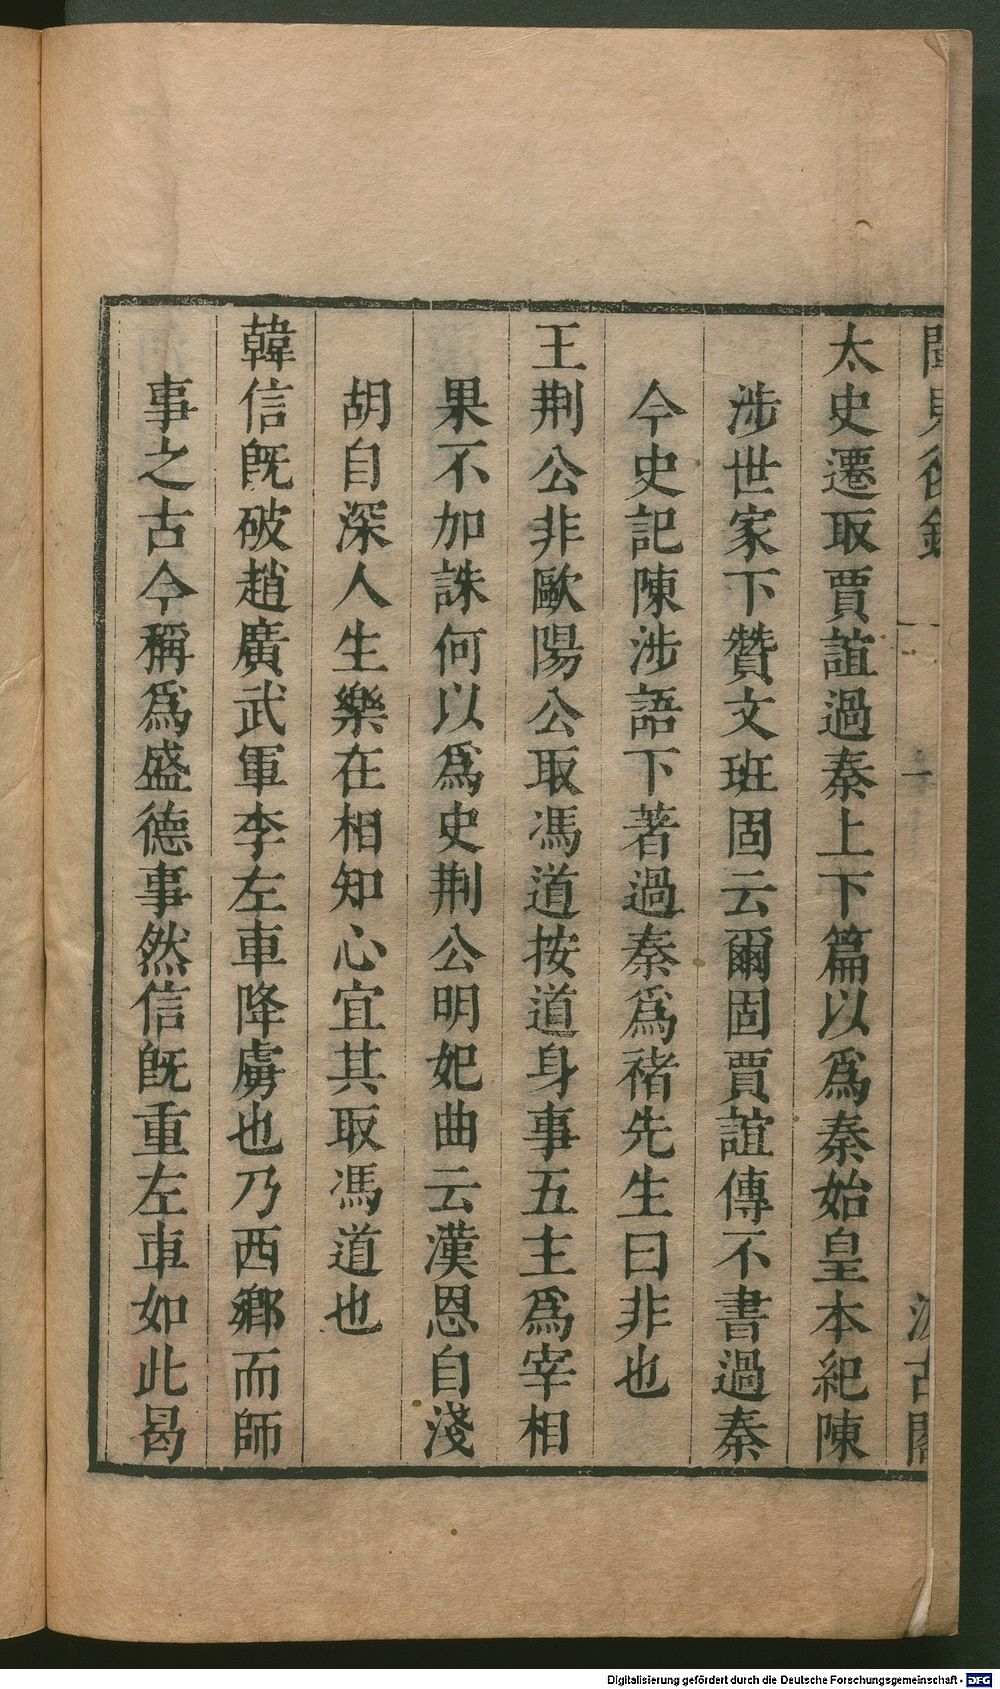 聞見後錄 一 一 汲古閣
太史遷取賈誼過秦上下篇以爲秦始皇本紀陳
涉世家下贊文班固云爾固賈誼傳不書過秦
今史記陳涉語下著過秦爲褚先生曰非也
王荆公非歐陽公取馮道按道身事五主爲宰相
果不加誅何以爲史荆公明妃曲云漢恩自淺
胡自深人生樂在相知心宜其取馮道也
韓信旣破趙廣武軍李左車降虜也乃西鄉而師
事之古今稱爲盛德事然信旣重左車如此曷
Digitalisierung gefördert durch die Deutsche Forschungsgemeinschaft - DFG